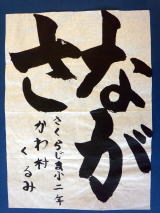 なが
さ
さくらじま小二年
かわ村
くるみ